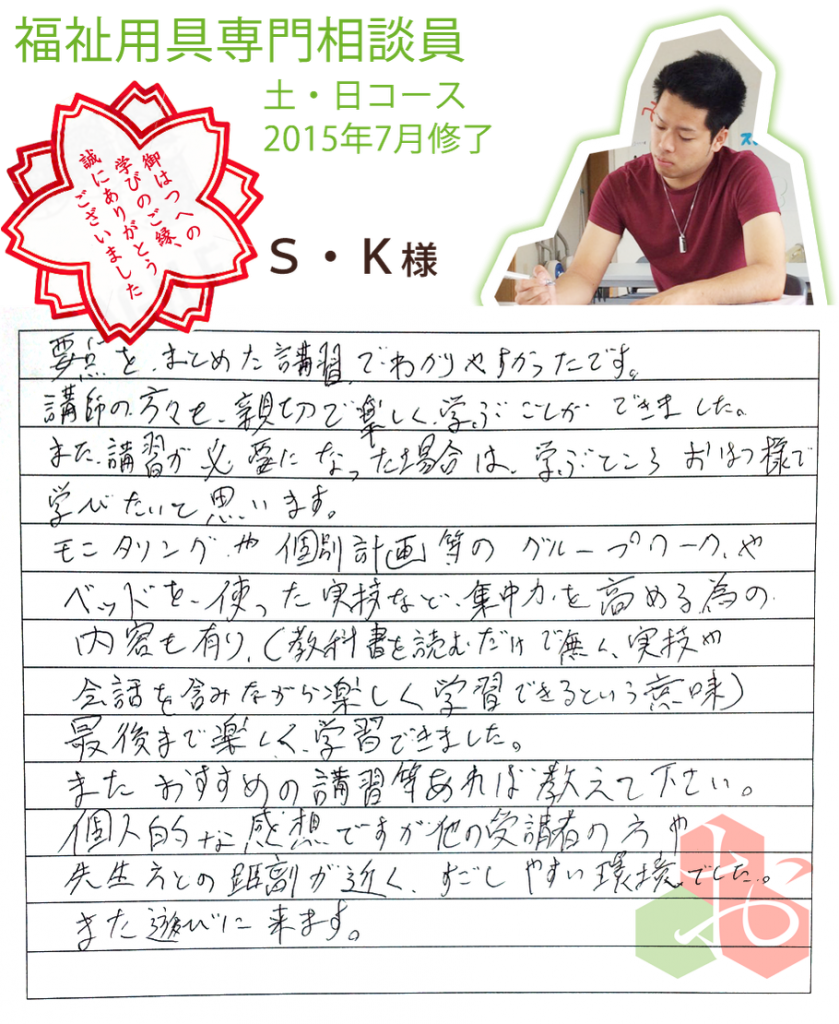 福祉用具専門相談員
土・日コース
2015年7月修了
御はつへの
学びのご縁、
誠にありがとう
ございました
S・K様
要点を、まとめた講習でわかりやすかったです。
講師の方々も、親切で楽しく、学ぶことができました。
また、講習が必要になった場合は、学ぶところおはつ様で
学びたいと思います。
モニタリングや個別計画等のグループワーク、や
ベッドを、使った実技など、集中力を高める為の
内容も有り、(教科書を読むだけで無く、実技や
会話を含みながら楽しく学習できるという意味)
最後まで楽しく、学習できました。
またおすすめの講習等あれば教えて下さい。
個人的な感想ですが他の受講者の方や
先生方との距離が近く、すごしやすい環境でした。
また遊びに来ます。
お